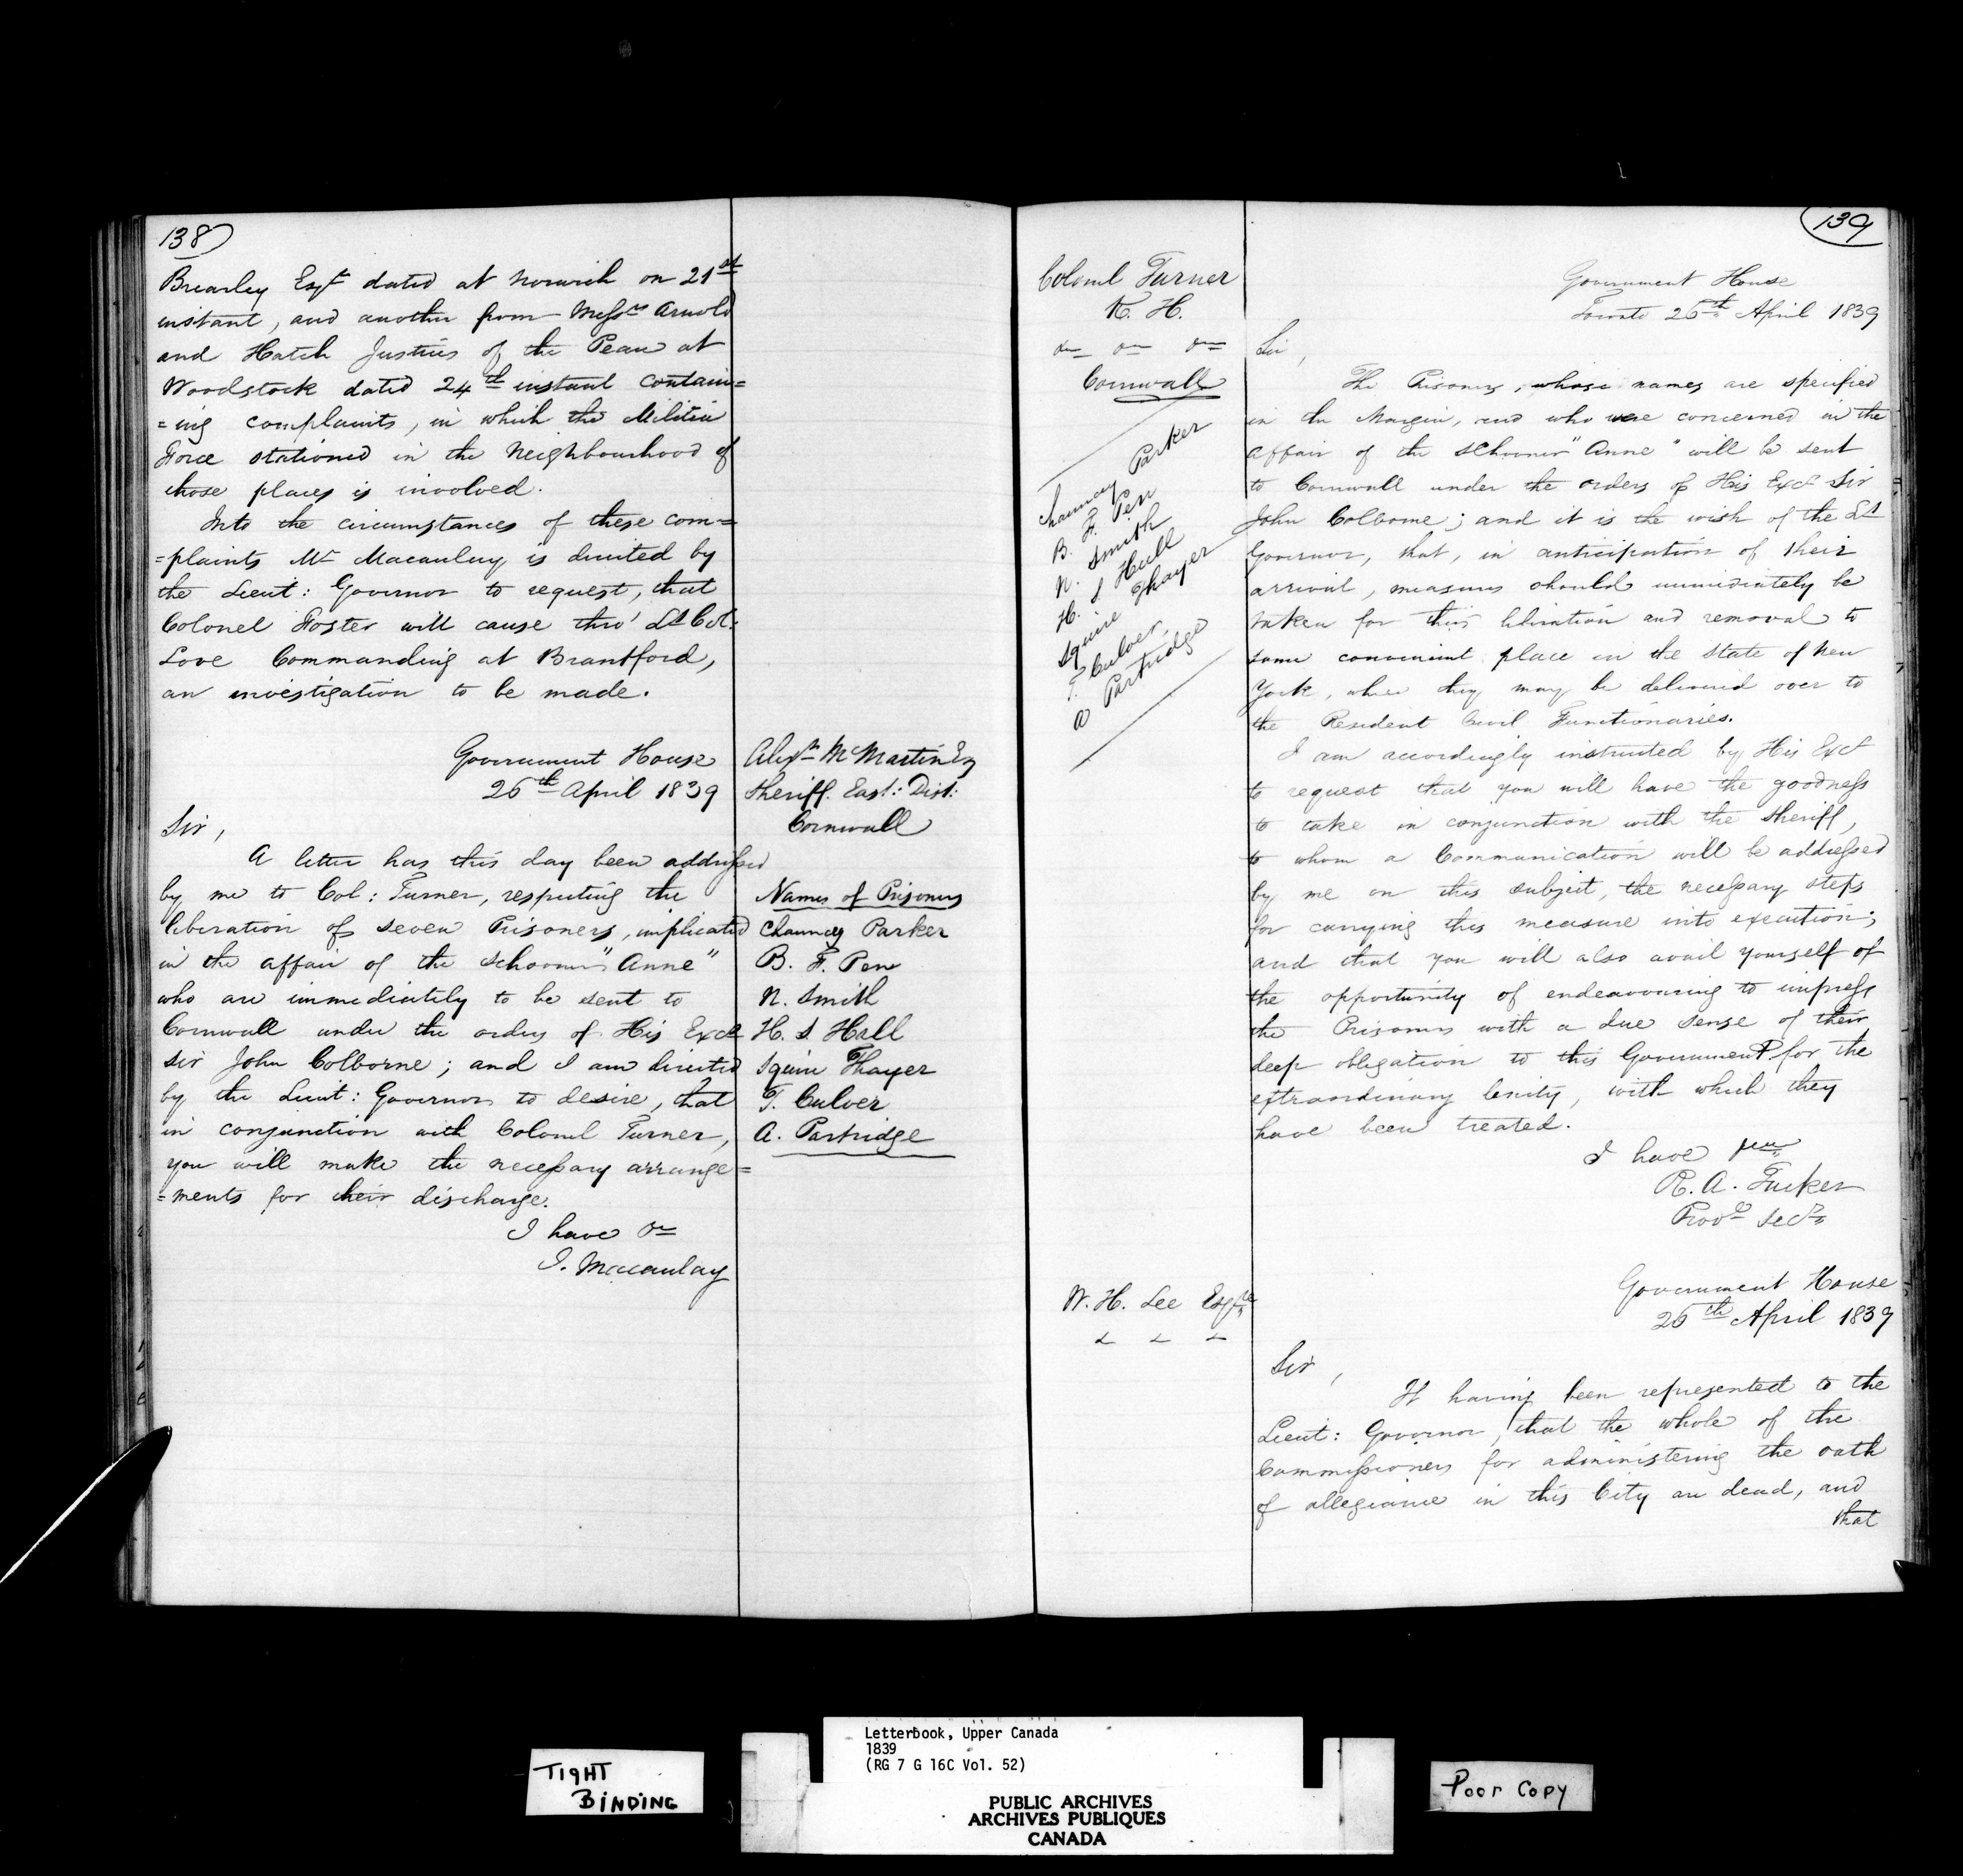 138
Brearley Esqr dated at Norwich on 21st
instant, and another from Messrs Arnold
and Hatch Justices of the Peace at
Woodstock dated 24th instant contain=
=ing complaints, in which the Militia
Force stationed in the Neighbourhood of
those places is involved.
Into the circumstances of these com=
=plaints Mr Macaulay is directed by
the Lieut: Governor to request, that
Colonel Foster will cause thro' Lt Col:
Love Commanding at Brantford,
an investigation to be made.
Government House
26th April 1839
Sir,
A letter has this day been addressed
by me to Col: Turner, respecting the
liberation of seven Prisoners, implicated
in the affair of the Schooner "Anne"
who are immediately to be sent to
Cornwall under the orders of His Excy
Sir John Colborne; and I am directed
by the Lieut: Governor to desire, that
in conjunction with Colonel Turner,
you will make the necessary arrange=
=ments for their discharge.
I have &c
J. Macaulay
Alexr McMartin Esq
Sheriff. East: Dist:
Cornwall
Names of Prisoners
Chauncey Parker
B. F. Pew
N. Smith
H. S. Hull
Squire Thayer
T. Culver
A. Partridge
139
Colonel Turner
K. H.
&c &c &c
Cornwall
Chauncey Parker
B. F. Pew
N. Smith
H. S Hull
Squire Thayer
T. Culver
A Partridge
Government House
Toronto 26th April 1839
Sir,
The Prisoners, whose names are specified
in the Margin, and who were concerned in the
affair of the Schooner "Anne" will be sent
to Cornwall under the orders of His Excy Sir
John Colborne; and it is the wish of the Lt
Governor, that, in anticipation of their
arrival, measures should immediately be
taken for their liberation and removal to
some convenient place in the State of New
York, where they may be delivered over to
the Resident Civil Functionaries.
I am accordingly instructed by His Excy
to request that you will have the goodness
to take in conjunction with the Sheriff,
to whom a Communication will be addressed
by me on this subject, the necessary steps
for carrying this measure into execution;
and that you will also avail yourself of
the opportunity of endeavouring to impress
the Prisoners with a due sense of their
deep obligation to this Government for the
extraordinary lenity, with which they
have been treated.
I have &c
R. A. Tucker
Provl Secy
W. H. Lee Esqre
& & &
Government House
26th April 1839
Sir,
It having been represented to the
Lieut: Governor, that the whole of the
Commissioners for administering the oath
of allegiance in this City are dead, and
that
TIGHT
BINDING
Letterbook, Upper Canada
1839
(RG 7 G 16C Vol. 52)
PUBLIC ARCHIVES
ARCHIVES PUBLIQUES
CANADA
Poor Copy